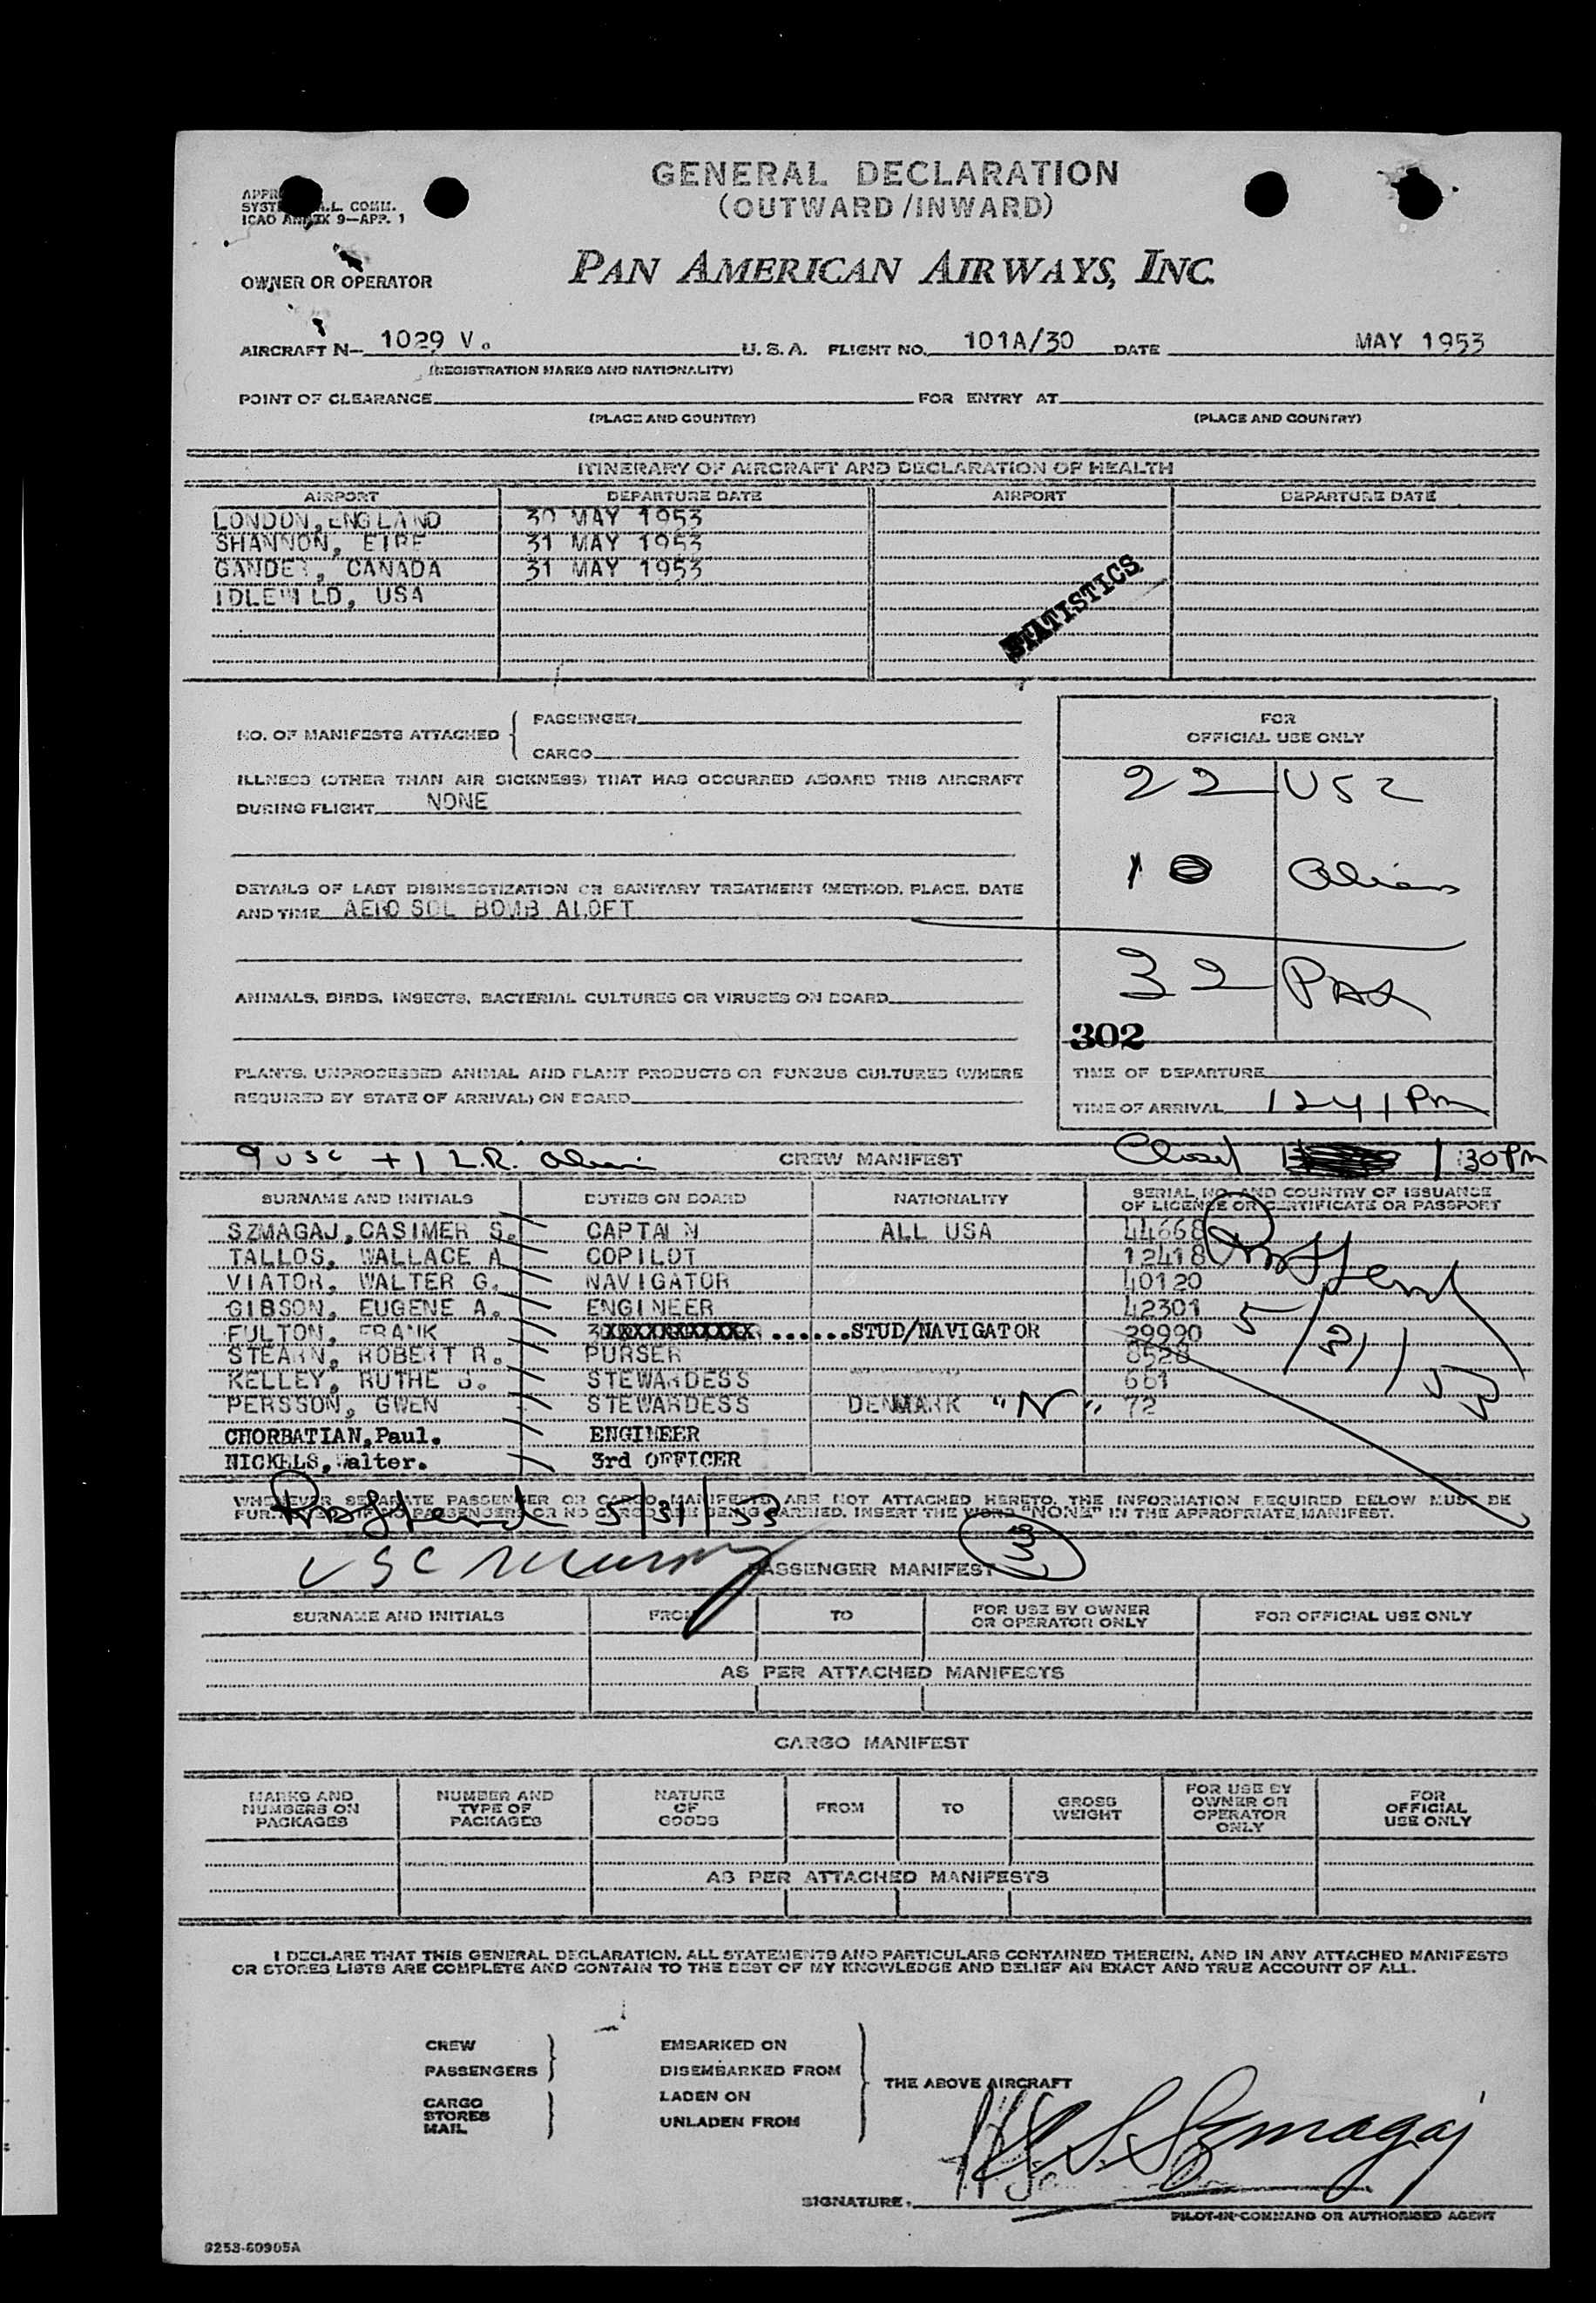 GENERAL DECLARATION
(OUTWARD/INWARD)
L. COMM.
ICAO ANNEX 9—APP. 1
OWNER OR OPERATOR
PAN AMERICAN AIRWAYS, INC.
AIRCRAFT N— 1029 V. U. S. A. FLIGHT NO. 101A/30 DATE MAY 1953
(REGISTRATION MARKS AND NATIONALITY)
POINT OF CLEARANCE FOR ENTRY AT
(PLACE AND COUNTRY) (PLACE AND COUNTRY)
ITINERARY OF AIRCRAFT AND DECLARATION OF HEALTH
AIRPORT DEPARTURE DATE AIRPORT DEPARTURE DATE
LONDON, ENGLAND 30 MAY 1953
SHANNON, EIRE 31 MAY 1953
GANDER, CANADA 31 MAY 1953
IDLEWILD, USA
STATISTICS
NO. OF MANIFESTS ATTACHED { PASSENGER
CARGO
FOR
OFFICIAL USE ONLY
ILLNESS (OTHER THAN AIR SICKNESS) THAT HAS OCCURRED ABOARD THIS AIRCRAFT
DURING FLIGHT NONE
22 USC
10 Aliens
DETAILS OF LAST DISINSECTIZATION OR SANITARY TREATMENT (METHOD, PLACE, DATE
AND TIME AEROSOL BOMB ALOFT
32 PAX
ANIMALS, BIRDS, INSECTS, BACTERIAL CULTURES OR VIRUSES ON BOARD
302
PLANTS, UNPROCESSED ANIMAL AND PLANT PRODUCTS OR FUNGUS CULTURES (WHERE
REQUIRED BY STATE OF ARRIVAL) ON BOARD
TIME OF DEPARTURE
TIME OF ARRIVAL 1241 PM
9 USC + 1 L.R. Alien CREW MANIFEST 1:30 PM
SURNAME AND INITIALS DUTIES ON BOARD NATIONALITY SERIAL NO. AND COUNTRY OF ISSUANCE
OF LICENSE OR CERTIFICATE OR PASSPORT
SZMAGAJ, CASIMER S. CAPTAIN ALL USA 44668
TALLOS, WALLACE A COPILOT 12418
VIATOR, WALTER G. NAVIGATOR 40120
GIBSON, EUGENE A. ENGINEER 42301
FULTON, FRANK 3XXXXXXXXXXXX ......STUD/NAVIGATOR 29920
STEARN, ROBERT R. PURSER 8528
KELLEY, RUTHE G. STEWARDESS 661
PERSSON, GWEN STEWARDESS DENMARK "N" 72
CHORBATIAN,Paul. ENGINEER
NICKELS,Walter. 3rd OFFICER
5/31/53
WHENEVER SEPARATE PASSENGER OR CARGO MANIFESTS ARE NOT ATTACHED HERETO, THE INFORMATION REQUIRED BELOW MUST BE
FURNISHED. IF NO PASSENGERS OR NO CARGO ARE BEING CARRIED, INSERT THE WORD "NONE" IN THE APPROPRIATE MANIFEST.
5/31/53
USC
PASSENGER MANIFEST
SURNAME AND INITIALS FROM TO FOR USE BY OWNER
OR OPERATOR ONLY FOR OFFICIAL USE ONLY
AS PER ATTACHED MANIFESTS
CARGO MANIFEST
MARKS AND
NUMBERS ON
PACKAGES
NUMBER AND
TYPE OF
PACKAGES
NATURE
OF
GOODS
FROM TO
GROSS
WEIGHT
FOR USE BY
OWNER OR
OPERATOR
ONLY
FOR
OFFICIAL
USE ONLY
AS PER ATTACHED MANIFESTS
I DECLARE THAT THIS GENERAL DECLARATION, ALL STATEMENTS AND PARTICULARS CONTAINED THEREIN, AND IN ANY ATTACHED MANIFESTS
OR STORES LISTS ARE COMPLETE AND CONTAIN TO THE BEST OF MY KNOWLEDGE AND BELIEF AN EXACT AND TRUE ACCOUNT OF ALL.
CREW EMBARKED ON
PASSENGERS DISEMBARKED FROM
THE ABOVE AIRCRAFT
CARGO LADEN ON
STORES
MAIL UNLADEN FROM
C. S. Szmagaj
SIGNATURE.
PILOT-IN-COMMAND OR AUTHORISED AGENT
9253-60905A